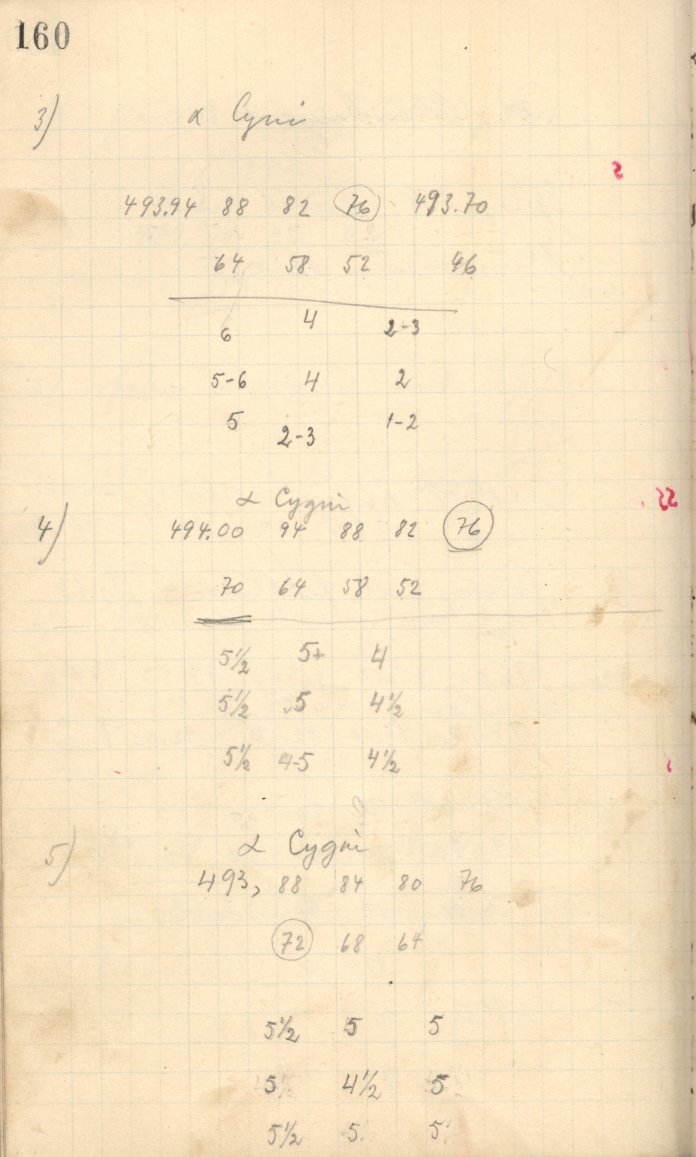 160
3) α Cygni
493.94 88 82 76 493.70
64 58 52 46
6 4 2-3
5-6 4 2
5 2-3 1-2
α Cygni
4) 494.00 94 88 82 76
70 64 58 52
5½ 5+ 4
5½ 5 4½
5½ 4-5 4½
5) α Cygni
493, 88 84 80 76
72 68 64
5½ 5 5
5 4½ 5
5½ 5 5